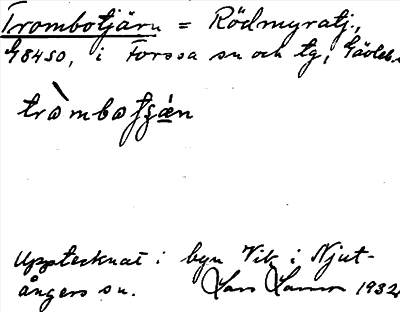 Trombotjärn = Rödmyratj.,
G8450, i Forssa sn och tg, Gävleb.
tròmbotʂǽn
Upptecknat i byn Vik i Njut-
ångers sn. Lars 1932